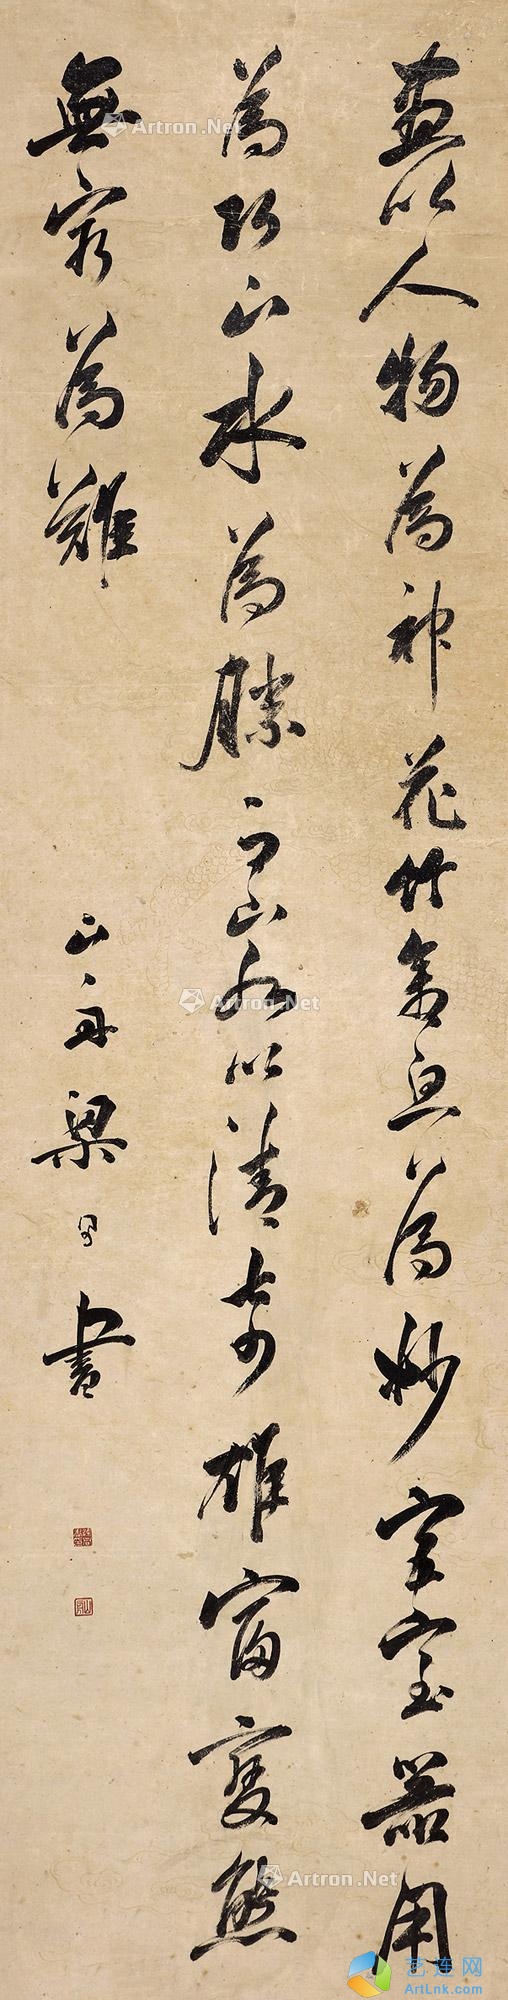 畫以人物為神花竹禽魚為妙宮室器用
為巧山水為勝而山水以清奇雄富變態
無窮為難
山舟梁同書
Artron.Net
Artron.Net
Artron.Net
艺连网
ArtLnk.com